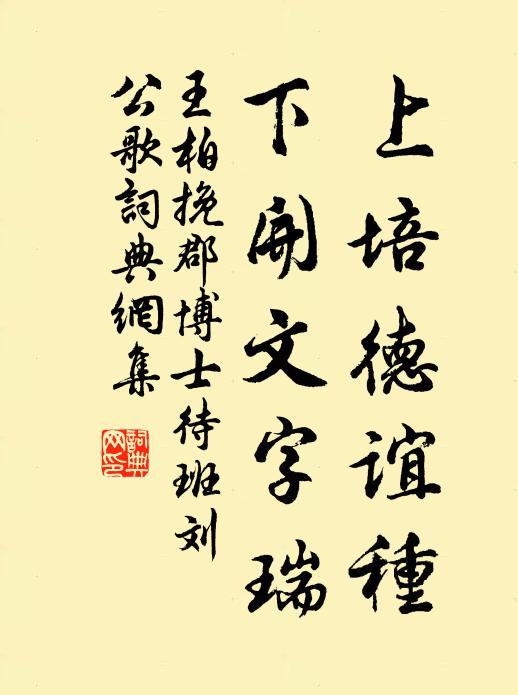 上培德誼種
下開文字瑞
王柏挽郡博士待班刘
公歌詞典網集
詞典网印